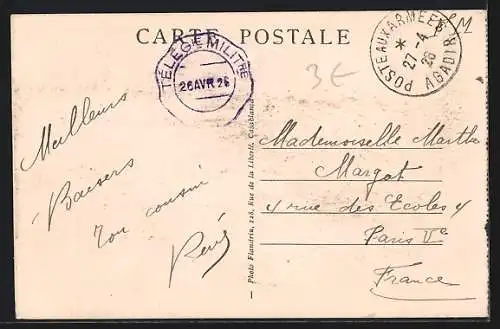 CARTE POSTALE
TÉLÉGIE MILITRE
26 AVR 26
POSTE AUX ARMEES
* 27-4 26
AGADIR
FM
3€
Meilleurs
Baisers
Ton cousin
René
Photo Flandrin, 128, Rue de la Liberté, Casablanca
Mademoiselle Marthe
Margot
4 rue des Ecoles 4
Paris Ve
France